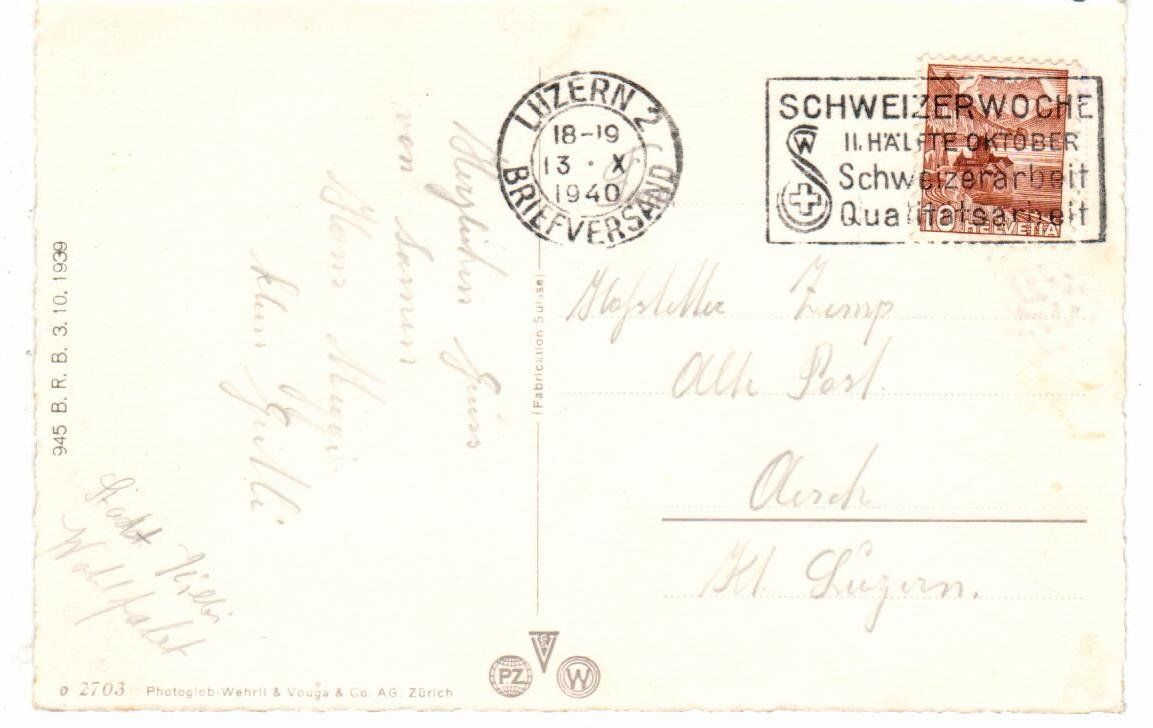 LUZERN 2
18-19
13 · X
1940
BRIEFVERSAND
SCHWEIZERWOCHE
II. HÄLFTE OKTOBER
Schweizerarbeit
Qualitätsarbeit
10 HELVETIA
945 B. R. B. 3. 10. 1939
von
Hans
klein
Stadt
(Fabrication Suisse)
Hofstetter Zemp
Alte Post.
Aesch
Kt. Luzern.
PZ
W
o 2703 Photoglob-Wehrli & Vouga & Co. AG. Zürich